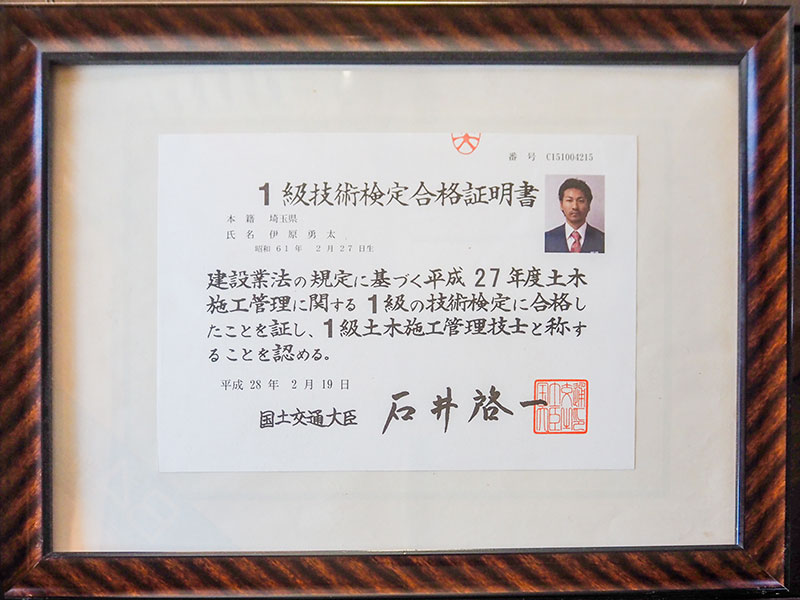 番 号 C151004215
1級技術検定合格証明書
本 籍 埼玉県
氏 名 伊 原 勇 太
昭和 61 年 2 月 27 日生
建設業法の規定に基づく平成 27 年度土木
施工管理に関する 1級の技術検定に合格し
たことを証し、1級土木施工管理技士と称す
ることを認める。
平成 28 年 2 月 19 日
国土交通大臣 石井啓一